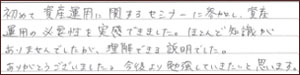 初めて資産運用に関するセミナーに参加し、資産
運用の必要性を実感できました。ほとんど知識が
ありませんでしたが、理解できる説明でした。
ありがとうございました。今後より勉強していきたいと思います。